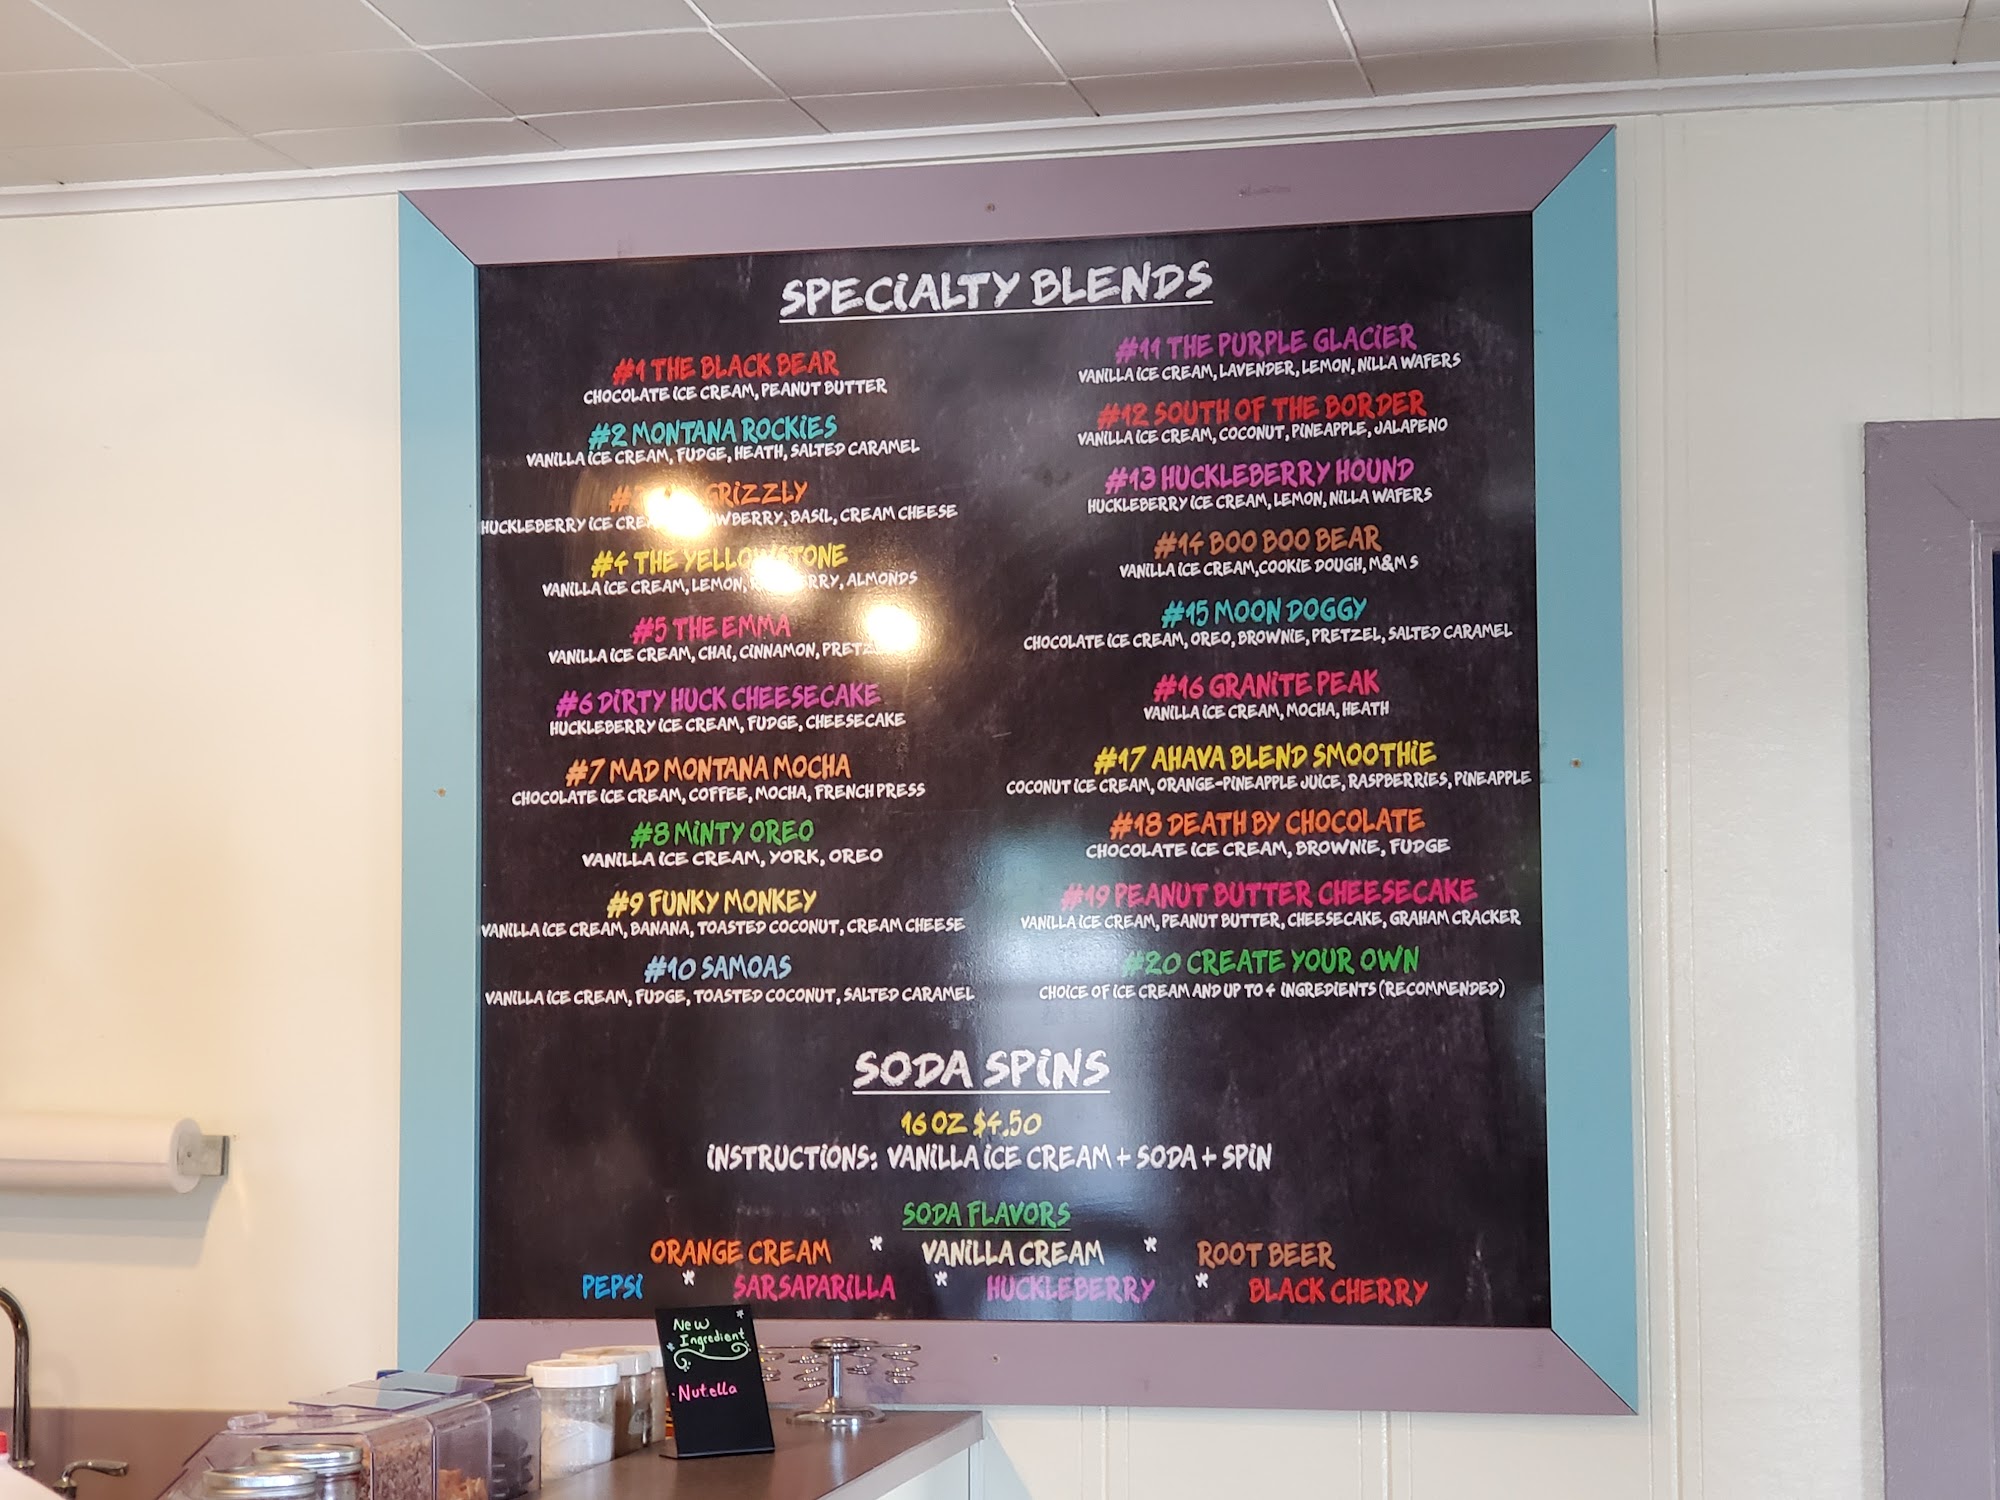 SPECIALTY BLENDS
#1 THE BLACK BEAR
CHOCOLATE ICE CREAM, PEANUT BUTTER
#2 MONTANA ROCKIES
VANILLA ICE CREAM, FUDGE, HEATH, SALTED CARAMEL
GRIZZLY
HUCKLEBERRY ICE BASIL, CREAM CHEESE
#4 THE YELLOWSTONE
VANILLA ICE CREAM, LEMON, ALMONDS
#5 THE EMMA
VANILLA ICE CREAM, CHAI, CINNAMON,
#6 DIRTY HUCK CHEESECAKE
HUCKLEBERRY ICE CREAM, FUDGE, CHEESECAKE
#7 MAD MONTANA MOCHA
CHOCOLATE ICE CREAM, COFFEE, MOCHA, FRENCH PRESS
#8 MINTY OREO
VANILLA ICE CREAM, YORK, OREO
#9 FUNKY MONKEY
VANILLA ICE CREAM, BANANA, TOASTED COCONUT, CREAM CHEESE
#10 SAMOAS
VANILLA ICE CREAM, FUDGE, TOASTED COCONUT, SALTED CARAMEL
#11 THE PURPLE GLACIER
VANILLA ICE CREAM, LAVENDER, LEMON, NILLA WAFERS
#12 SOUTH OF THE BORDER
VANILLA ICE CREAM, COCONUT, PINEAPPLE, JALAPENO
#13 HUCKLEBERRY HOUND
HUCKLEBERRY ICE CREAM, LEMON, NILLA WAFERS
#14 BOO BOO BEAR
VANILLA ICE CREAM,COOKIE DOUGH, M&M S
#15 MOON DOGGY
CHOCOLATE ICE CREAM, OREO, BROWNIE, PRETZEL, SALTED CARAMEL
#16 GRANITE PEAK
VANILLA ICE CREAM, MOCHA, HEATH
#17 AHAVA BLEND SMOOTHIE
COCONUT ICE CREAM, ORANGE-PINEAPPLE JUICE, RASPBERRIES, PINEAPPLE
#18 DEATH BY CHOCOLATE
CHOCOLATE ICE CREAM, BROWNIE, FUDGE
#19 PEANUT BUTTER CHEESECAKE
VANILLA ICE CREAM, PEANUT BUTTER, CHEESECAKE, GRAHAM CRACKER
#20 CREATE YOUR OWN
CHOICE OF ICE CREAM AND UP TO 4 INGREDIENTS (RECOMMENDED)
SODA SPINS
16 OZ $4.50
INSTRUCTIONS: VANILLA ICE CREAM + SODA + SPIN
SODA FLAVORS
ORANGE CREAM * VANILLA CREAM * ROOT BEER
PEPSI * SARSAPARILLA * HUCKLEBERRY * BLACK CHERRY
New
Ingredient
Nutella